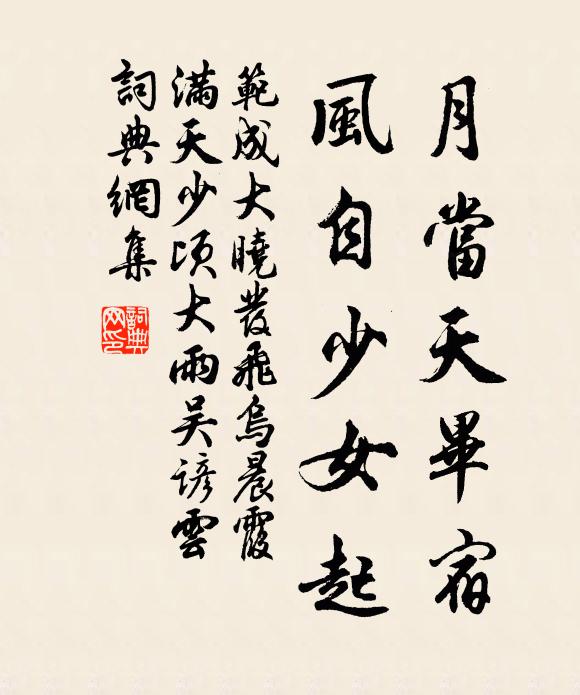 月當天畢宿
風自少女起
範成大曉發飛烏晨霞
滿天少頃大雨吴諺雲
詞典網集
詞典
网印